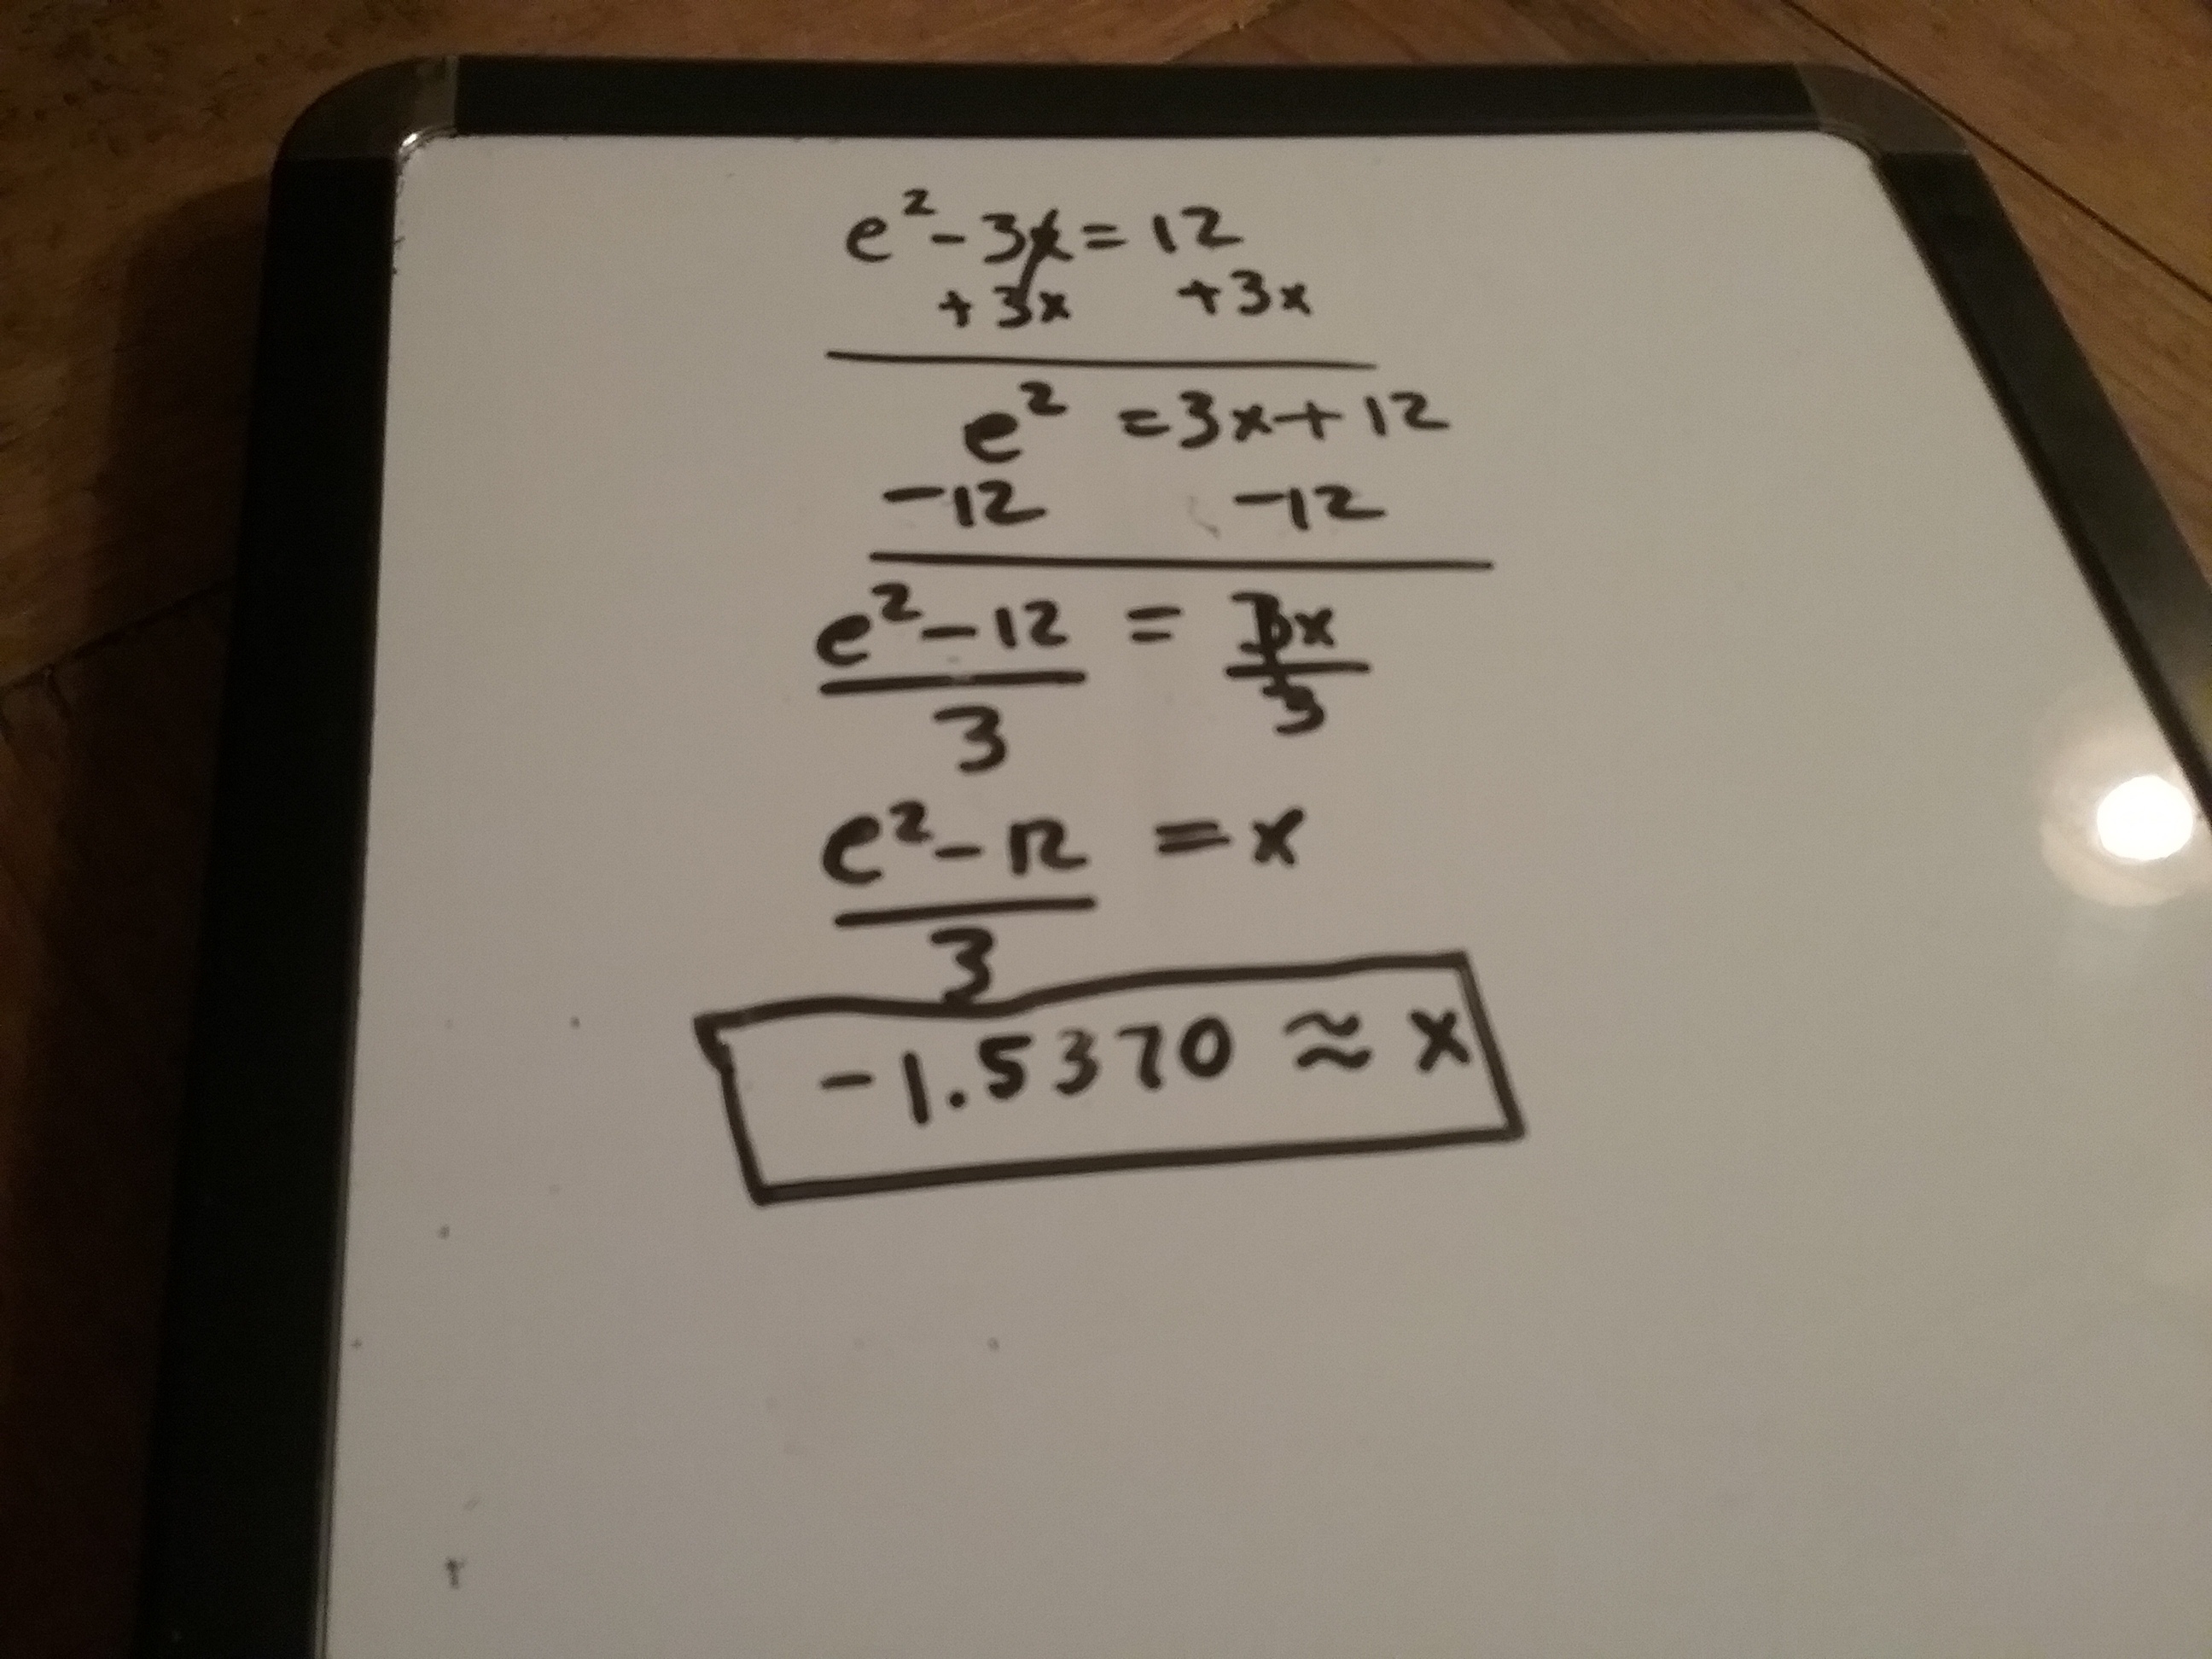 e² - 3x = 12
+ 3x +3x
e² = 3x + 12
-12 -12
e² - 12 = 3x
3 3
e² - 12 = x
3
-1.5370 ≈ x